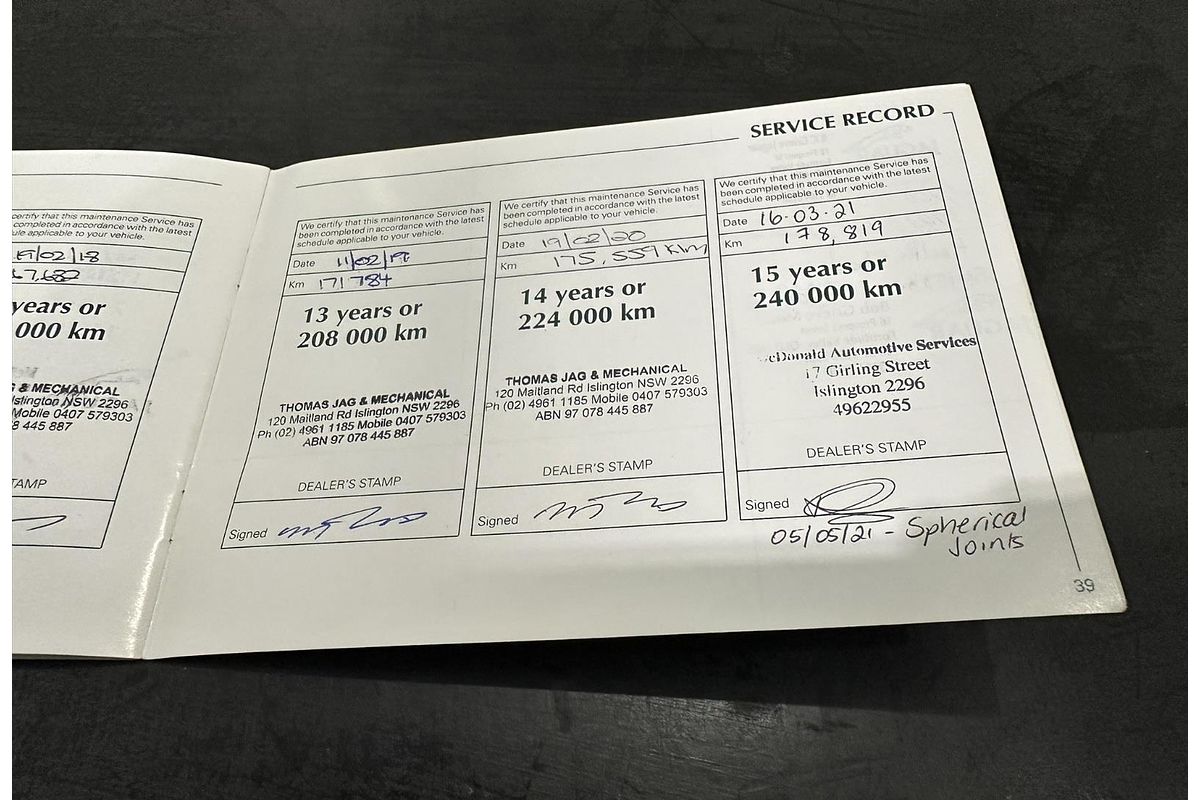 SERVICE RECORD
certify that this maintenance Service has
completed in accordance with the latest
applicable to your vehicle.
/02/18
7,682
years or
000 km
& MECHANICAL
Islington NSW 2296
Mobile 0407 579303
8 445 887
TAMP
We certify that this maintenance Service has
been completed in accordance with the latest
schedule applicable to your vehicle.
Date 11/02/19
Km 171 784
13 years or
208 000 km
THOMAS JAG & MECHANICAL
120 Maitland Rd Islington NSW 2296
Ph (02) 4961 1185 Mobile 0407 579303
ABN 97 078 445 887
DEALER'S STAMP
Signed
We certify that this maintenance Service has
been completed in accordance with the latest
schedule applicable to your vehicle.
Date 19/02/20
Km 175,559 Klm
14 years or
224 000 km
THOMAS JAG & MECHANICAL
120 Maitland Rd Islington NSW 2296
Ph (02) 4961 1185 Mobile 0407 579303
ABN 97 078 445 887
DEALER'S STAMP
Signed
We certify that this maintenance Service has
been completed in accordance with the latest
schedule applicable to your vehicle.
Date 16·03·21
Km 178,819
15 years or
240 000 km
cDonald Automotive Services
17 Girling Street
Islington 2296
49622955
DEALER'S STAMP
Signed
05/05/21 - Spherical
Joints
39